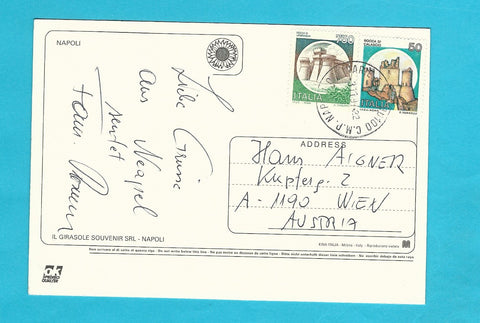 NAPOLI
Liebe Grüsse
aus Neapel
sendet
ROCCA DI
700
ITALIA
ROCCA DI
CALASCIO
50
ITALIA
C.M.P. NAP
ADDRESS
Hans AIGNER
Kupferg. 2
A - 1190 WIEN
AUSTRIA
IL GIRASOLE SOUVENIR SRL - NAPOLI
KINA ITALIA - Milano - Italy - Riproduzione vietata
ok